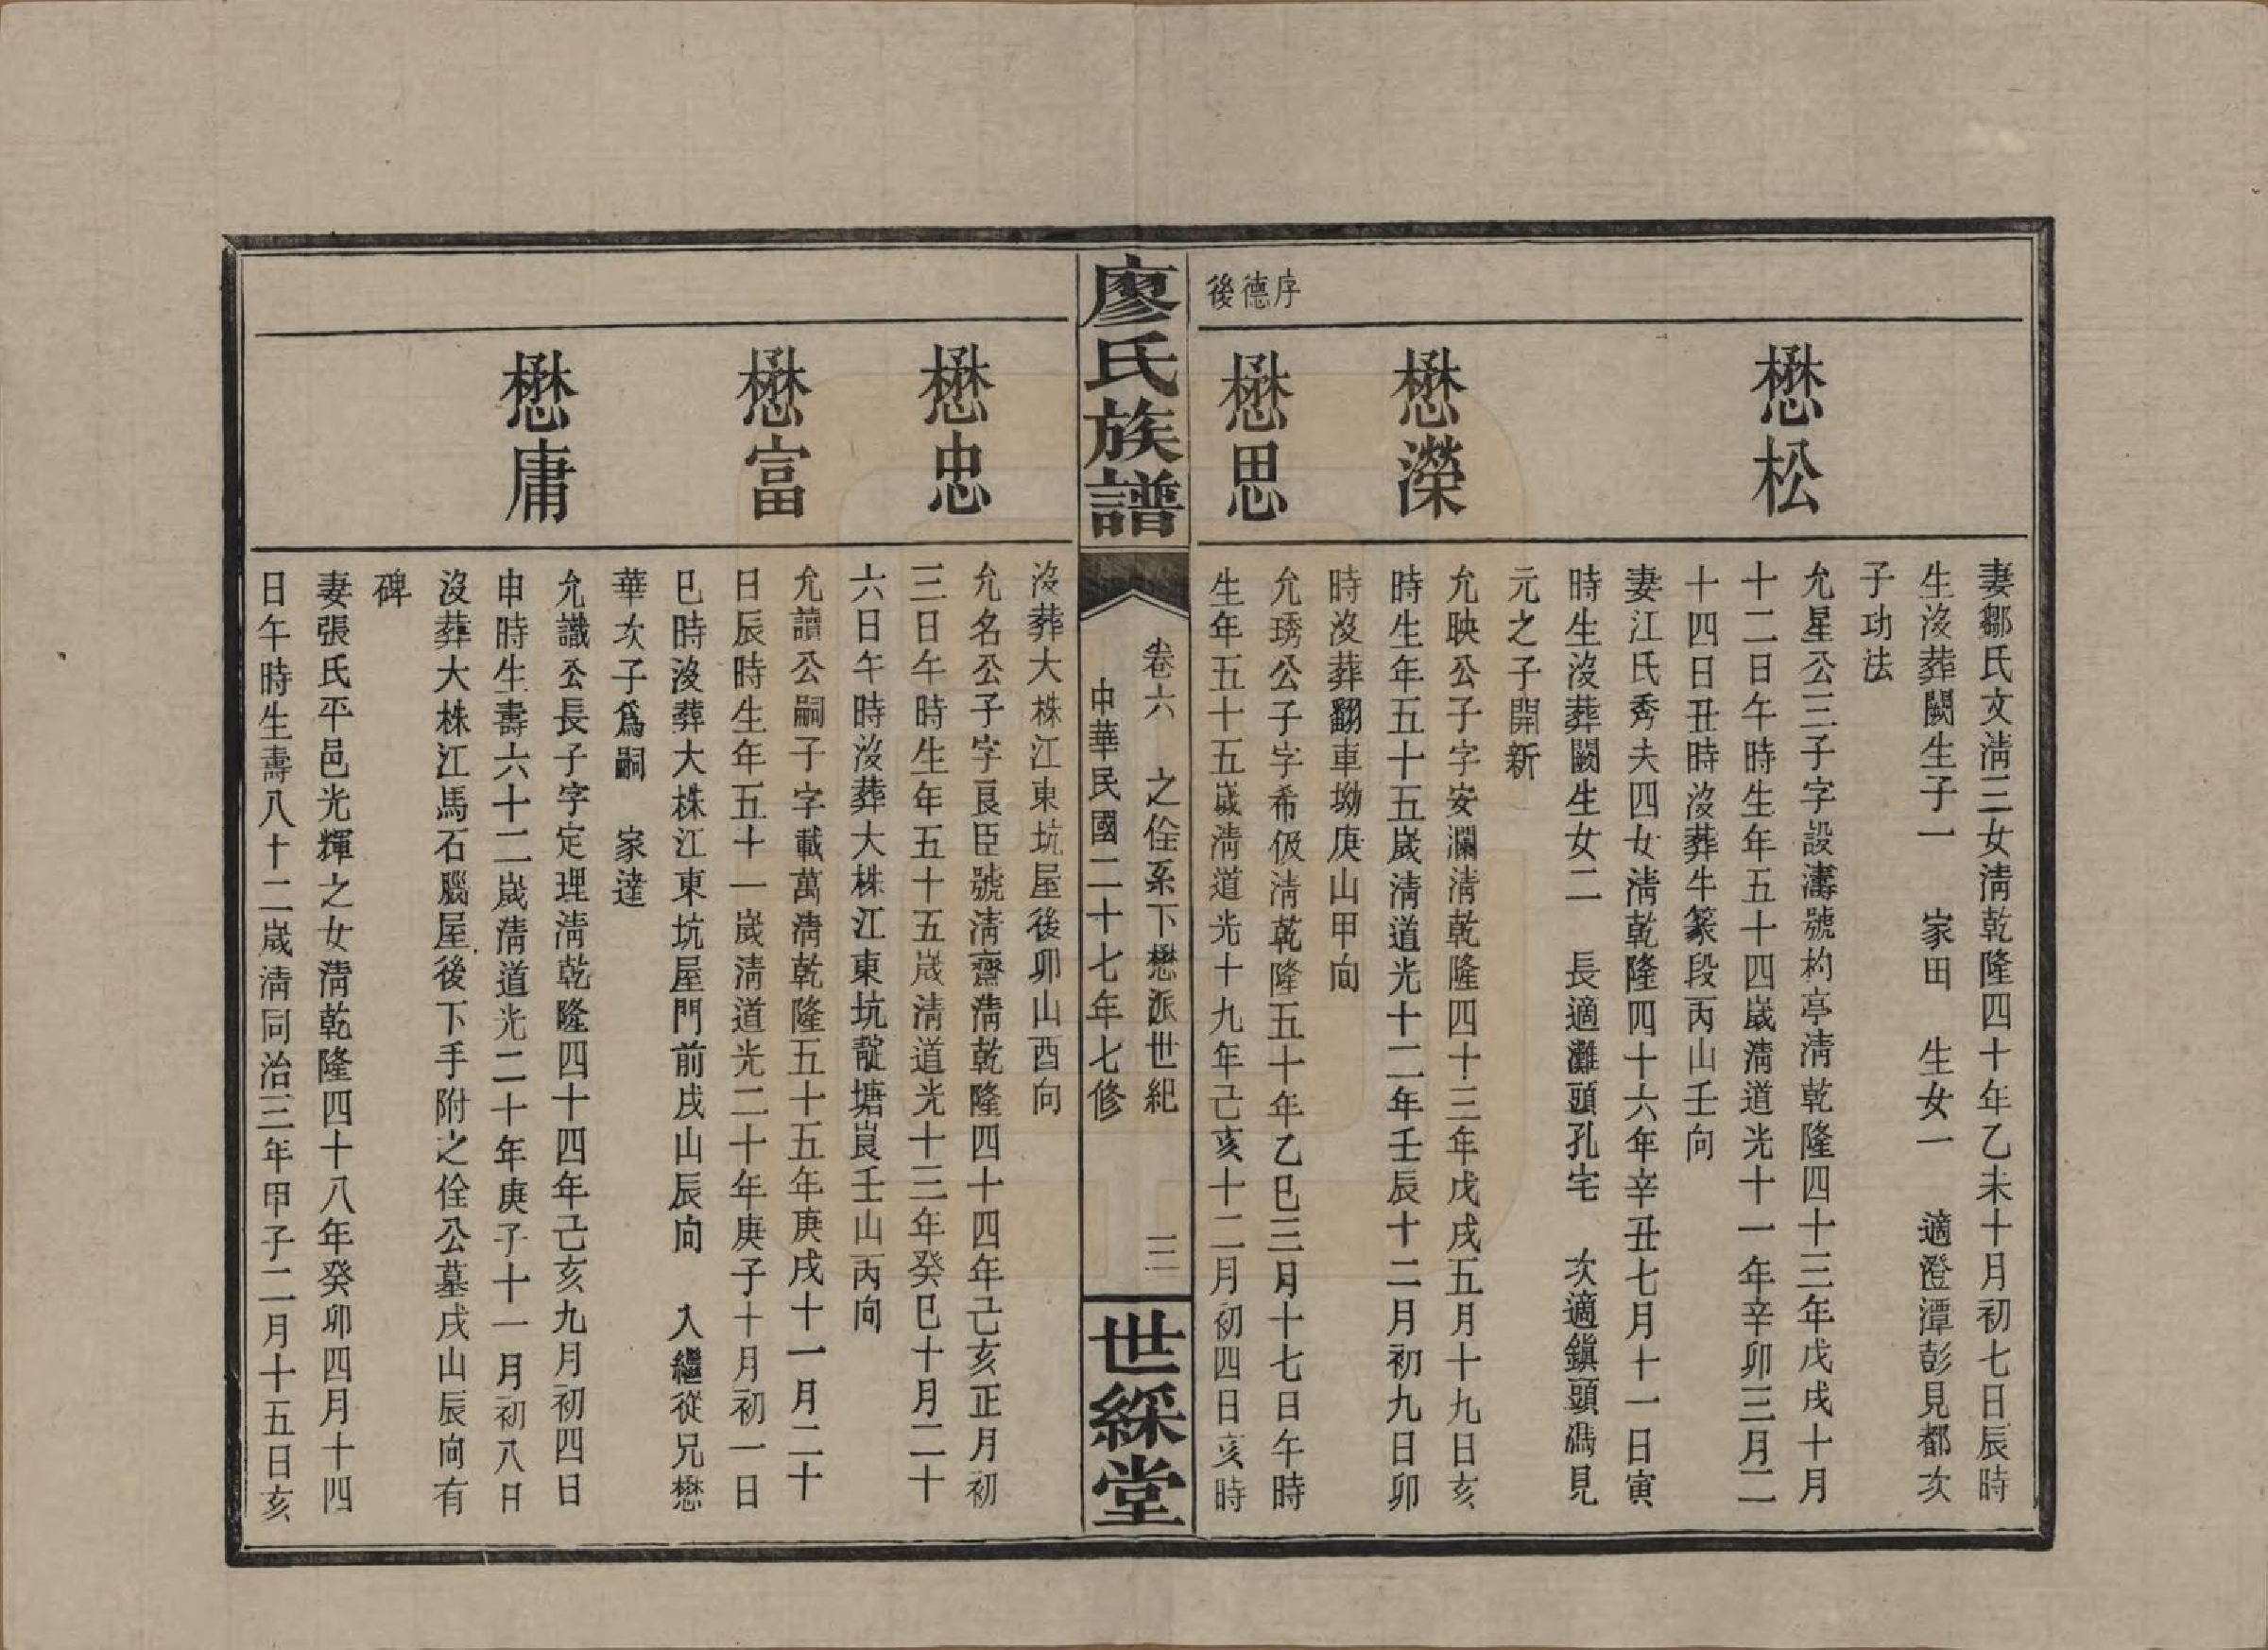 序德後
妻鄒氏文淸三女淸乾隆四十年乙未十月初七日辰時
生沒葬闕生子一　家田　生女一　適澄潭彭見都次
子功法
懋松
允星公三子字設濤號杓亭淸乾隆四十三年戊戌十月
十二日午時生年五十四嵗淸道光十一年辛卯三月二
十四日丑時沒葬牛篆段丙山壬向
妻江氏秀夫四女淸乾隆四十六年辛丑七月十一日寅
時生沒葬闕生女二　長適灘頭孔宅　次適鎭頭馮見
元之子開新
懋濚
允映公子字安瀾淸乾隆四十三年戊戌五月十九日亥
時生年五十五嵗淸道光十二年壬辰十二月初九日卯
時沒葬翻車坳庚山甲向
懋思
允琇公子字希伋淸乾隆五十年乙巳三月十七日午時
生年五十五嵗淸道光十九年己亥十二月初四日亥時
廖氏族譜
卷六　之佺系下懋派世紀　三
中華民國二十七年七修
世綵堂
沒葬大株江東坑屋後卯山酉向
懋忠
允名公子字良臣號淸齋淸乾隆四十四年己亥正月初
三日午時生年五十五嵗淸道光十三年癸巳十月二十
六日午時沒葬大株江東坑靛塘崀壬山丙向
懋富
允讀公嗣子字載萬淸乾隆五十五年庚戌十一月二十
日辰時生年五十一嵗淸道光二十年庚子十月初一日
巳時沒葬大株江東坑屋門前戌山辰向　入繼從兄懋
華次子爲嗣　家達
懋庸
允讖公長子字定理淸乾隆四十四年己亥九月初四日
申時生壽六十二嵗淸道光二十年庚子十一月初八日
沒葬大株江馬石腦屋後下手附之佺公墓戌山辰向有
碑
妻張氏平邑光輝之女淸乾隆四十八年癸卯四月十四
日午時生壽八十二嵗淸同治三年甲子二月十五日亥